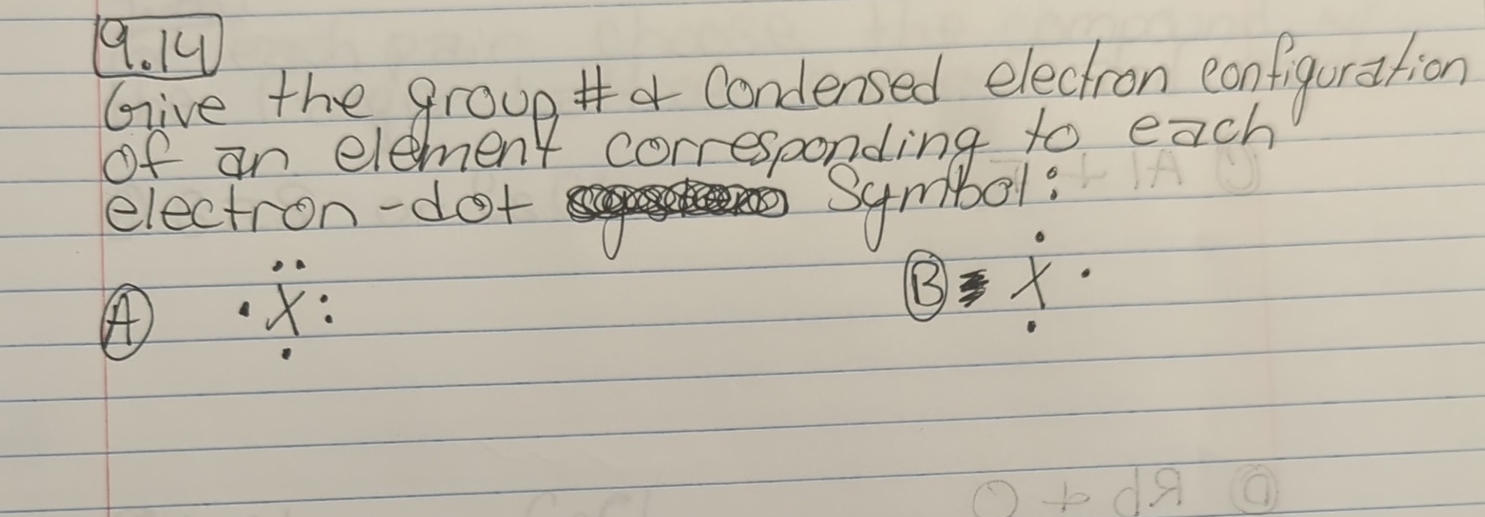 9.14
Give the group # & Condensed electron configuration
of an element corresponding to each
electron-dot Symbol:
A ·Ẍ: B X ·